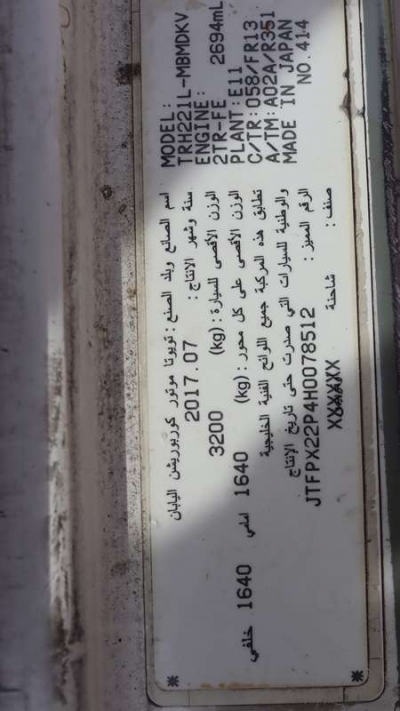 اسم الصانع وبلد الصنع : تويوتا موتور كوربوريشن اليابان
سنة وشهر الانتاج : 2017.07
الوزن الأقصى للسيارة : (kg) 3200
الوزن الأقصى على كل محور : (kg) 1640 امامي 1640 خلفي
تطابق هذه المركبة جميع اللوائح الفنية الخليجية
والوطنية للسيارات التي صدرت حتى تاريخ الإنتاج
الرقم المميز : JTFPX22P4H0078512
صنف : شاحنة XXXAXX
MODEL:
TRH221L-MBMDKV
ENGINE:
2TR-FE 2694mL
PLANT:E11
C/TR:058/FR13
A/TM:A02A/R351
MADE IN JAPAN
NO.414